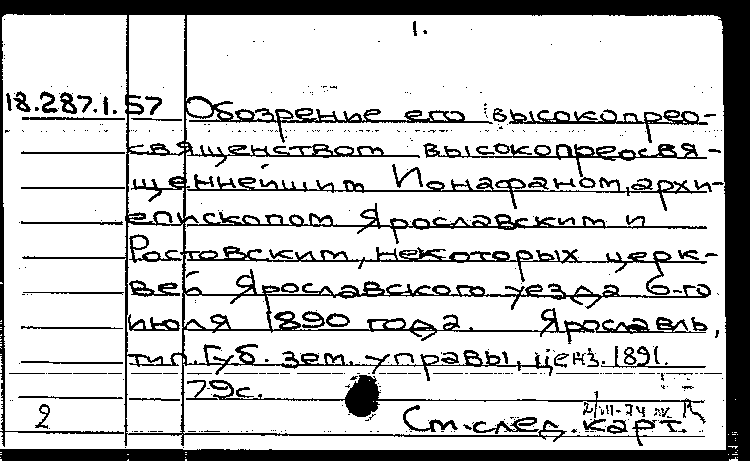 1.
18.287.1.57 Обозрение его высокопрео-
священством высокопреосвя-
щеннейшим Ионафаном, архи-
епископом Ярославским и
Ростовским, некоторых церк-
вей Ярославского уезда 6-го
июля 1890 года. Ярославль,
тип. Губ. зем. управы, ценз. 1891.
79с.
2
См. след. карт.